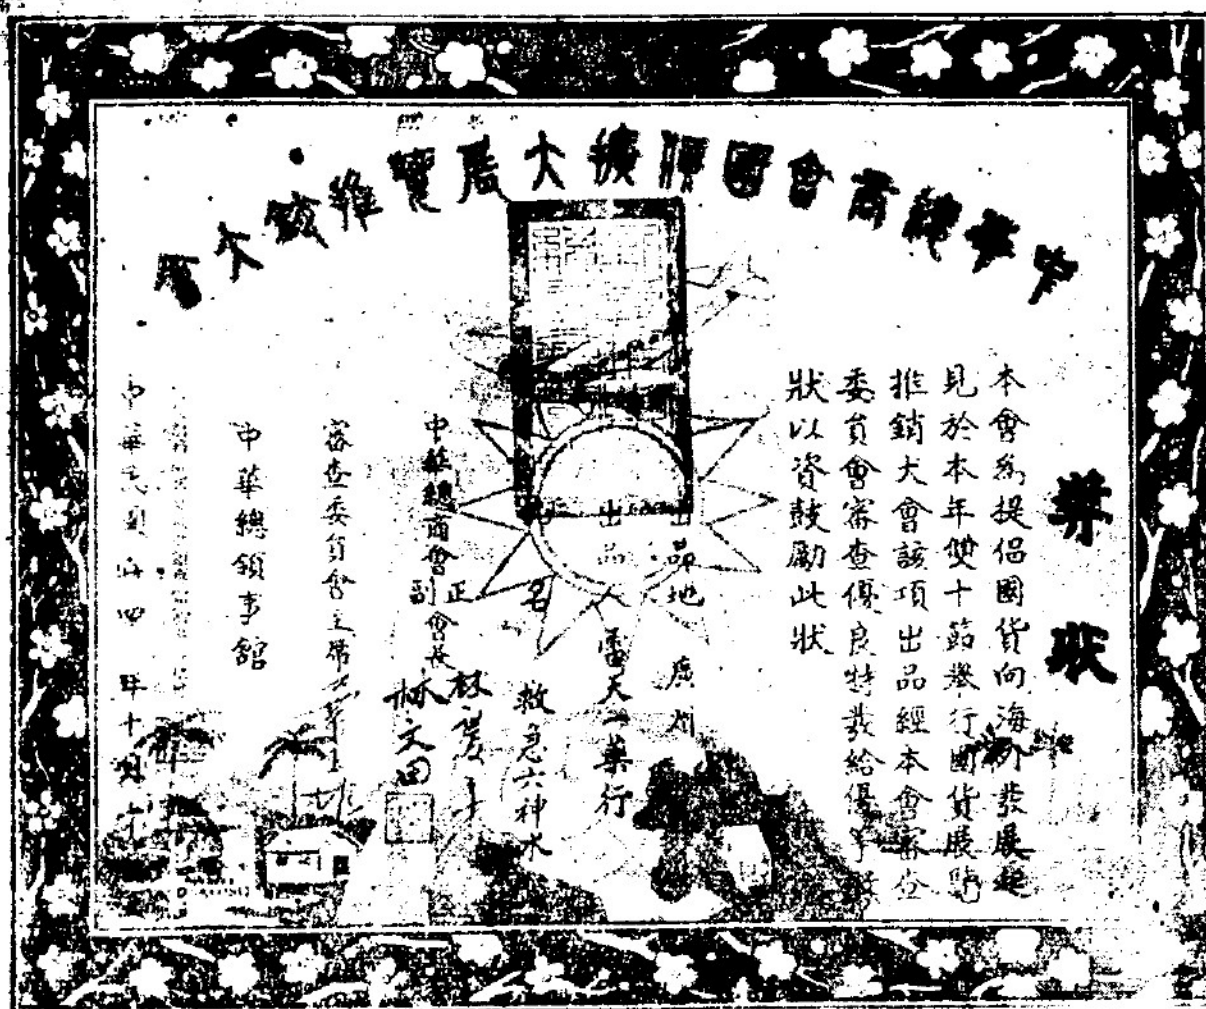 中華總商會國貨擴大展覽推銷大會
獎狀
本會為提倡國貨向海外發展起
見於本年雙十節舉行國貨展覽
推銷大會該項出品經本會審查
委員會審查優良特發給優等獎
狀以資鼓勵此狀
出品地 廣州
出品人 藥行
品名 救急六神水
中華總商會正副會長 林文田
審查委員會主席
中華總領事館
中華民國 四年十月